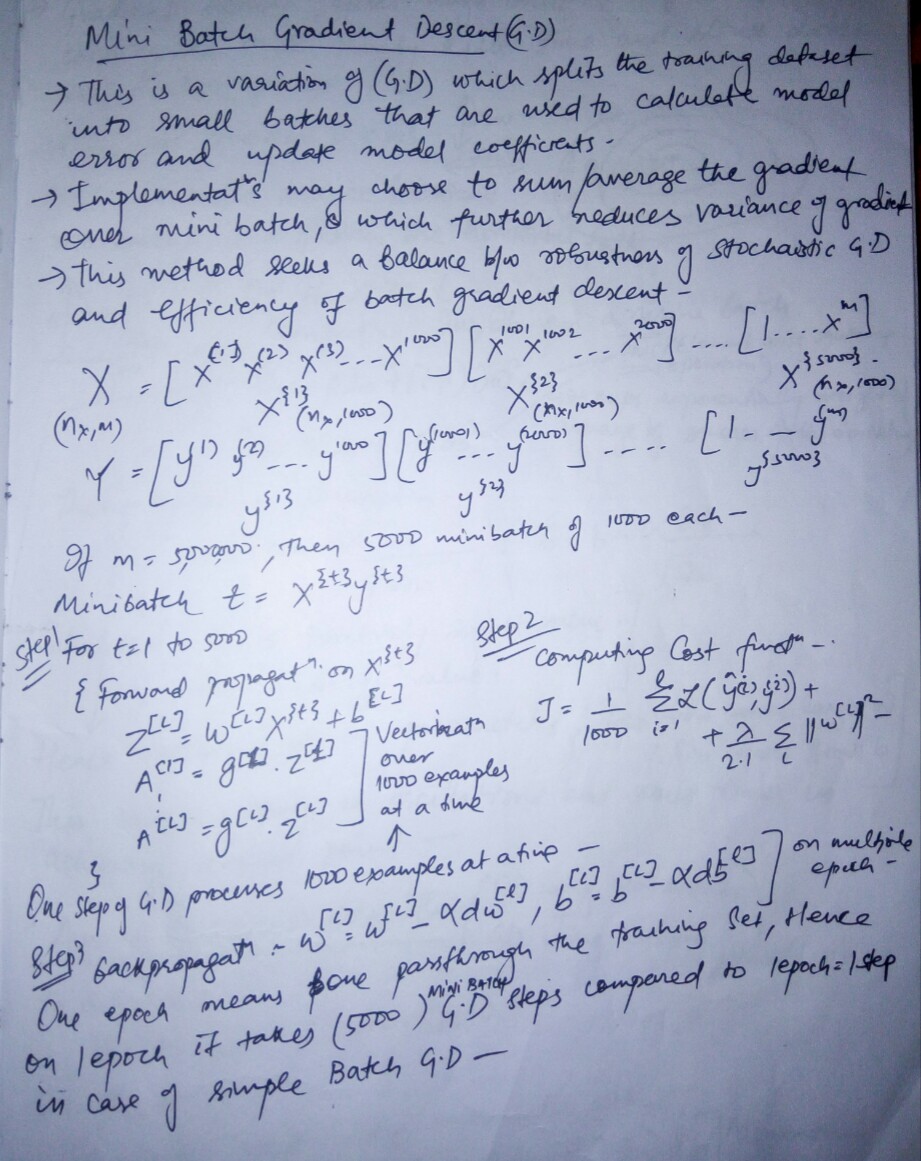 Mini Batch Gradient Descent (G.D)
→ This is a variation of (G.D) which splits the training dataset
into small batches that are used to calculate model
error and update model coefficients -
→ Implementatⁿs may choose to sum/average the gradient
over mini batch, & which further reduces variance of gradient
→ This method seeks a balance b/w robustness of stochaistic G.D
and efficiency of batch gradient descent -
X = [X^(1) X^(2) X^(3) ... X^1000] [X^1001 X^1002 ... X^2000] ..... [1 ..... X^m]
(n_x, m) X^{1} (n_x, 1000) X^{2} (n_x, 1000) X^{5000} (n_x, 1000)
Y = [y^1) y^(2) ... y^1000] [y^(1001) ... y^(2000)] ..... [1 - - y^(m)]
y^{1} y^{2} y^{5000}
If m = 5,000,000, then 5000 minibatch of 1000 each -
Minibatch t = X^{t} y^{t}
Step 1 For t=1 to 5000
{ Forward propagatⁿ on X^{t}
Z^[L] = W^[L] X^{t} + b^[L]
A^[1] = g^[1] . Z^[1]
A^[L] = g^[L] . Z^[L]
}
Vectorizatn
over
1000 examples
at a time
↑
Step 2
Computing Cost functⁿ -
J = 1/1000 Σ^l_{i=1} L(ŷ^(i), y^(i)) +
+ λ/2.1 Σ_L ||W^[L]||² -
One step of G.D processes 1000 examples at a time -
Step 3 Backpropagatⁿ :- W^[L] = W^[L] - αdW^[l], b^[L] = b^[L] - αdb^[l] ] on multiple
epoch -
One epoch means one pass through the training set, Hence
on 1 epoch it takes (5000) MINI BATCH G.D steps compared to 1 epoch = 1 step
in case of simple Batch G.D -